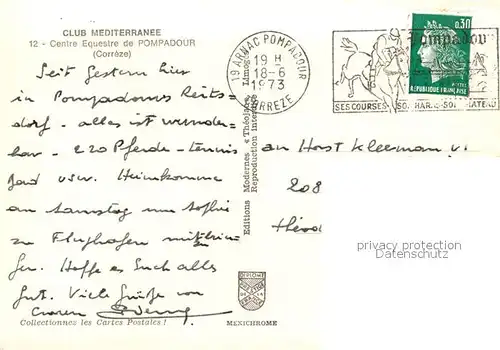 CLUB MEDITERRANEE
12 - Centre Equestre de POMPADOUR
(Corrèze)
Seit gestern hier
in Pompadours Reits-
dorf - alles ist wunder-
bar - 220 Pferde - tennis
usw. Heimkomme
am Samstag um
zu Flughafen
Hoffe es Euch alles
gut. Viele Grüße von
Collectionnez les Cartes Postales !
Editions Modernes « Théojac » Limoges
Reproduction interdite
DIPLOME
MEXICHROME
19 ARNAC POMPADOUR
19 H
18-6
1973
CORREZE
Pompadour
SES COURSES SON HARAS SON CHATEAU
0,30
REPUBLIQUE FRANÇAISE
an Horst Kleeman
208
privacy protection